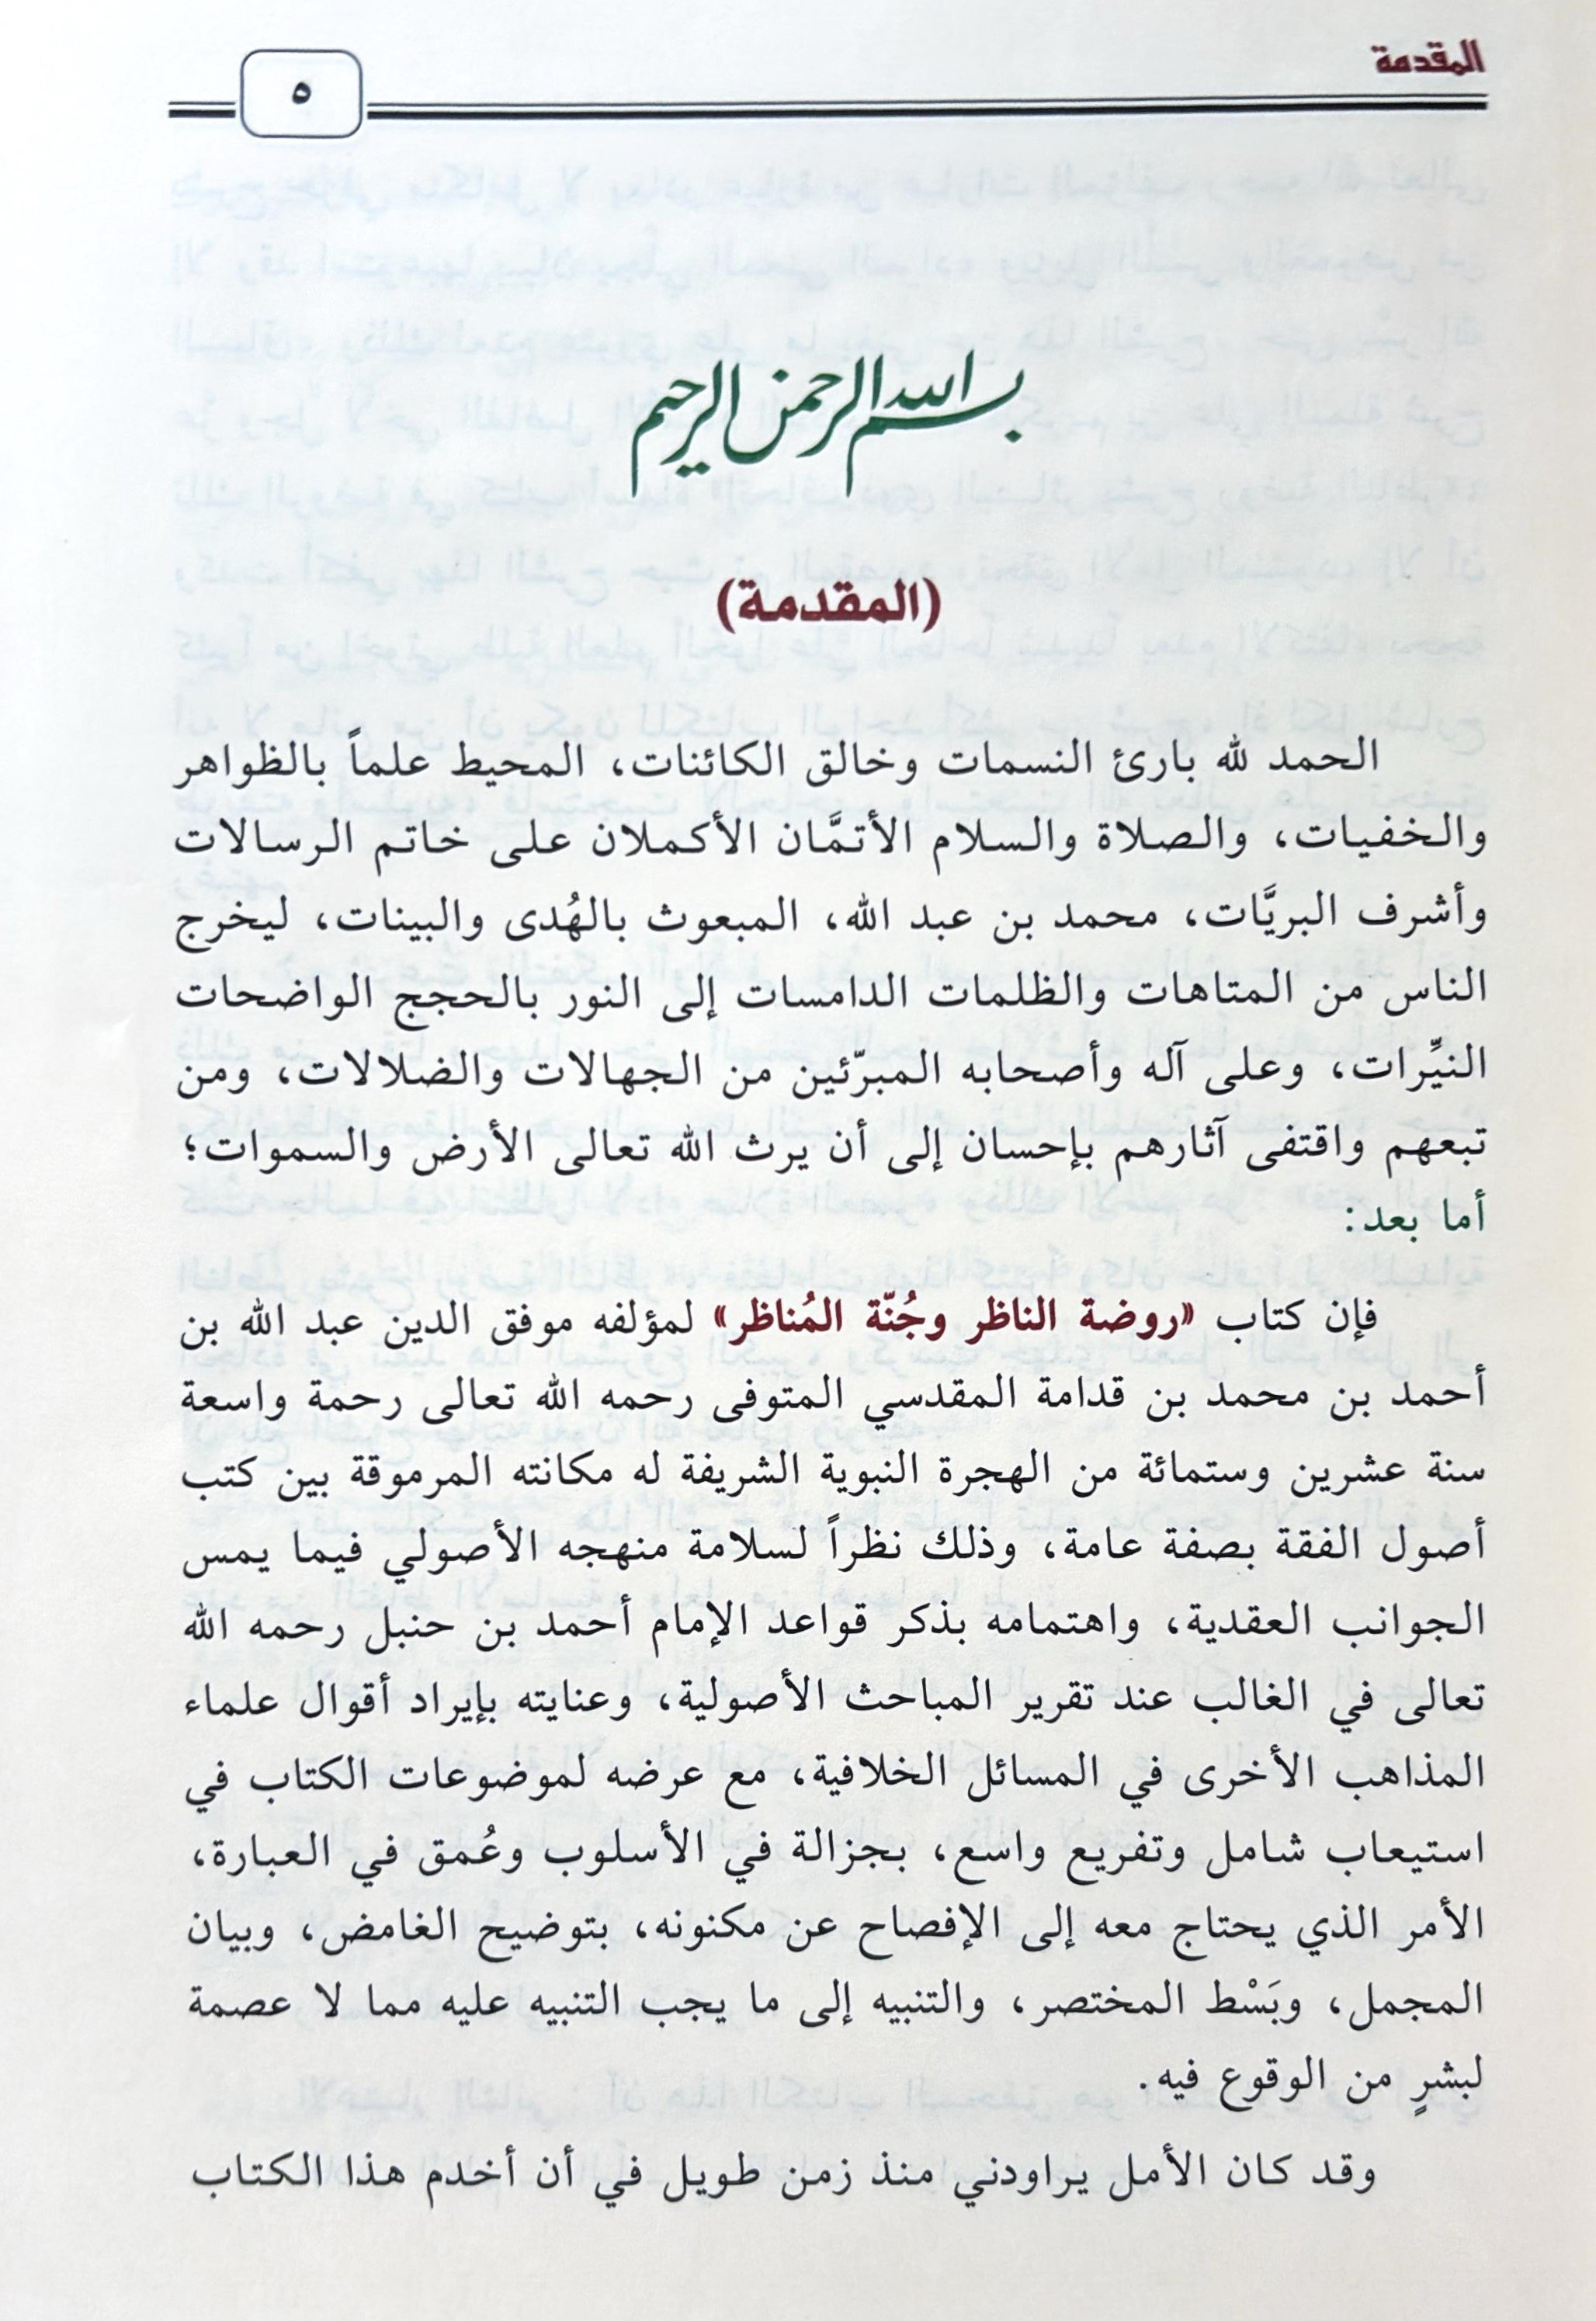 المقدمة
٥
بسم الله الرحمن الرحيم
(المقدمة)
الحمد لله بارئ النسمات وخالق الكائنات، المحيط علماً بالظواهر
والخفيات، والصلاة والسلام الأتمَّان الأكملان على خاتم الرسالات
وأشرف البريَّات، محمد بن عبد الله، المبعوث بالهُدى والبينات، ليخرج
الناس من المتاهات والظلمات الدامسات إلى النور بالحجج الواضحات
النيِّرات، وعلى آله وأصحابه المبرّئين من الجهالات والضلالات، ومن
تبعهم واقتفى آثارهم بإحسان إلى أن يرث الله تعالى الأرض والسموات؛
أما بعد:
فإن كتاب «روضة الناظر وجُنّة المُناظر» لمؤلفه موفق الدين عبد الله بن
أحمد بن محمد بن قدامة المقدسي المتوفى رحمه الله تعالى رحمة واسعة
سنة عشرين وستمائة من الهجرة النبوية الشريفة له مكانته المرموقة بين كتب
أصول الفقة بصفة عامة، وذلك نظراً لسلامة منهجه الأصولي فيما يمس
الجوانب العقدية، واهتمامه بذكر قواعد الإمام أحمد بن حنبل رحمه الله
تعالى في الغالب عند تقرير المباحث الأصولية، وعنايته بإيراد أقوال علماء
المذاهب الأخرى في المسائل الخلافية، مع عرضه لموضوعات الكتاب في
استيعاب شامل وتفريع واسع، بجزالة في الأسلوب وعُمق في العبارة،
الأمر الذي يحتاج معه إلى الإفصاح عن مكنونه، بتوضيح الغامض، وبيان
المجمل، وبَسْط المختصر، والتنبيه إلى ما يجب التنبيه عليه مما لا عصمة
لبشرٍ من الوقوع فيه.
وقد كان الأمل يراودني منذ زمن طويل في أن أخدم هذا الكتاب